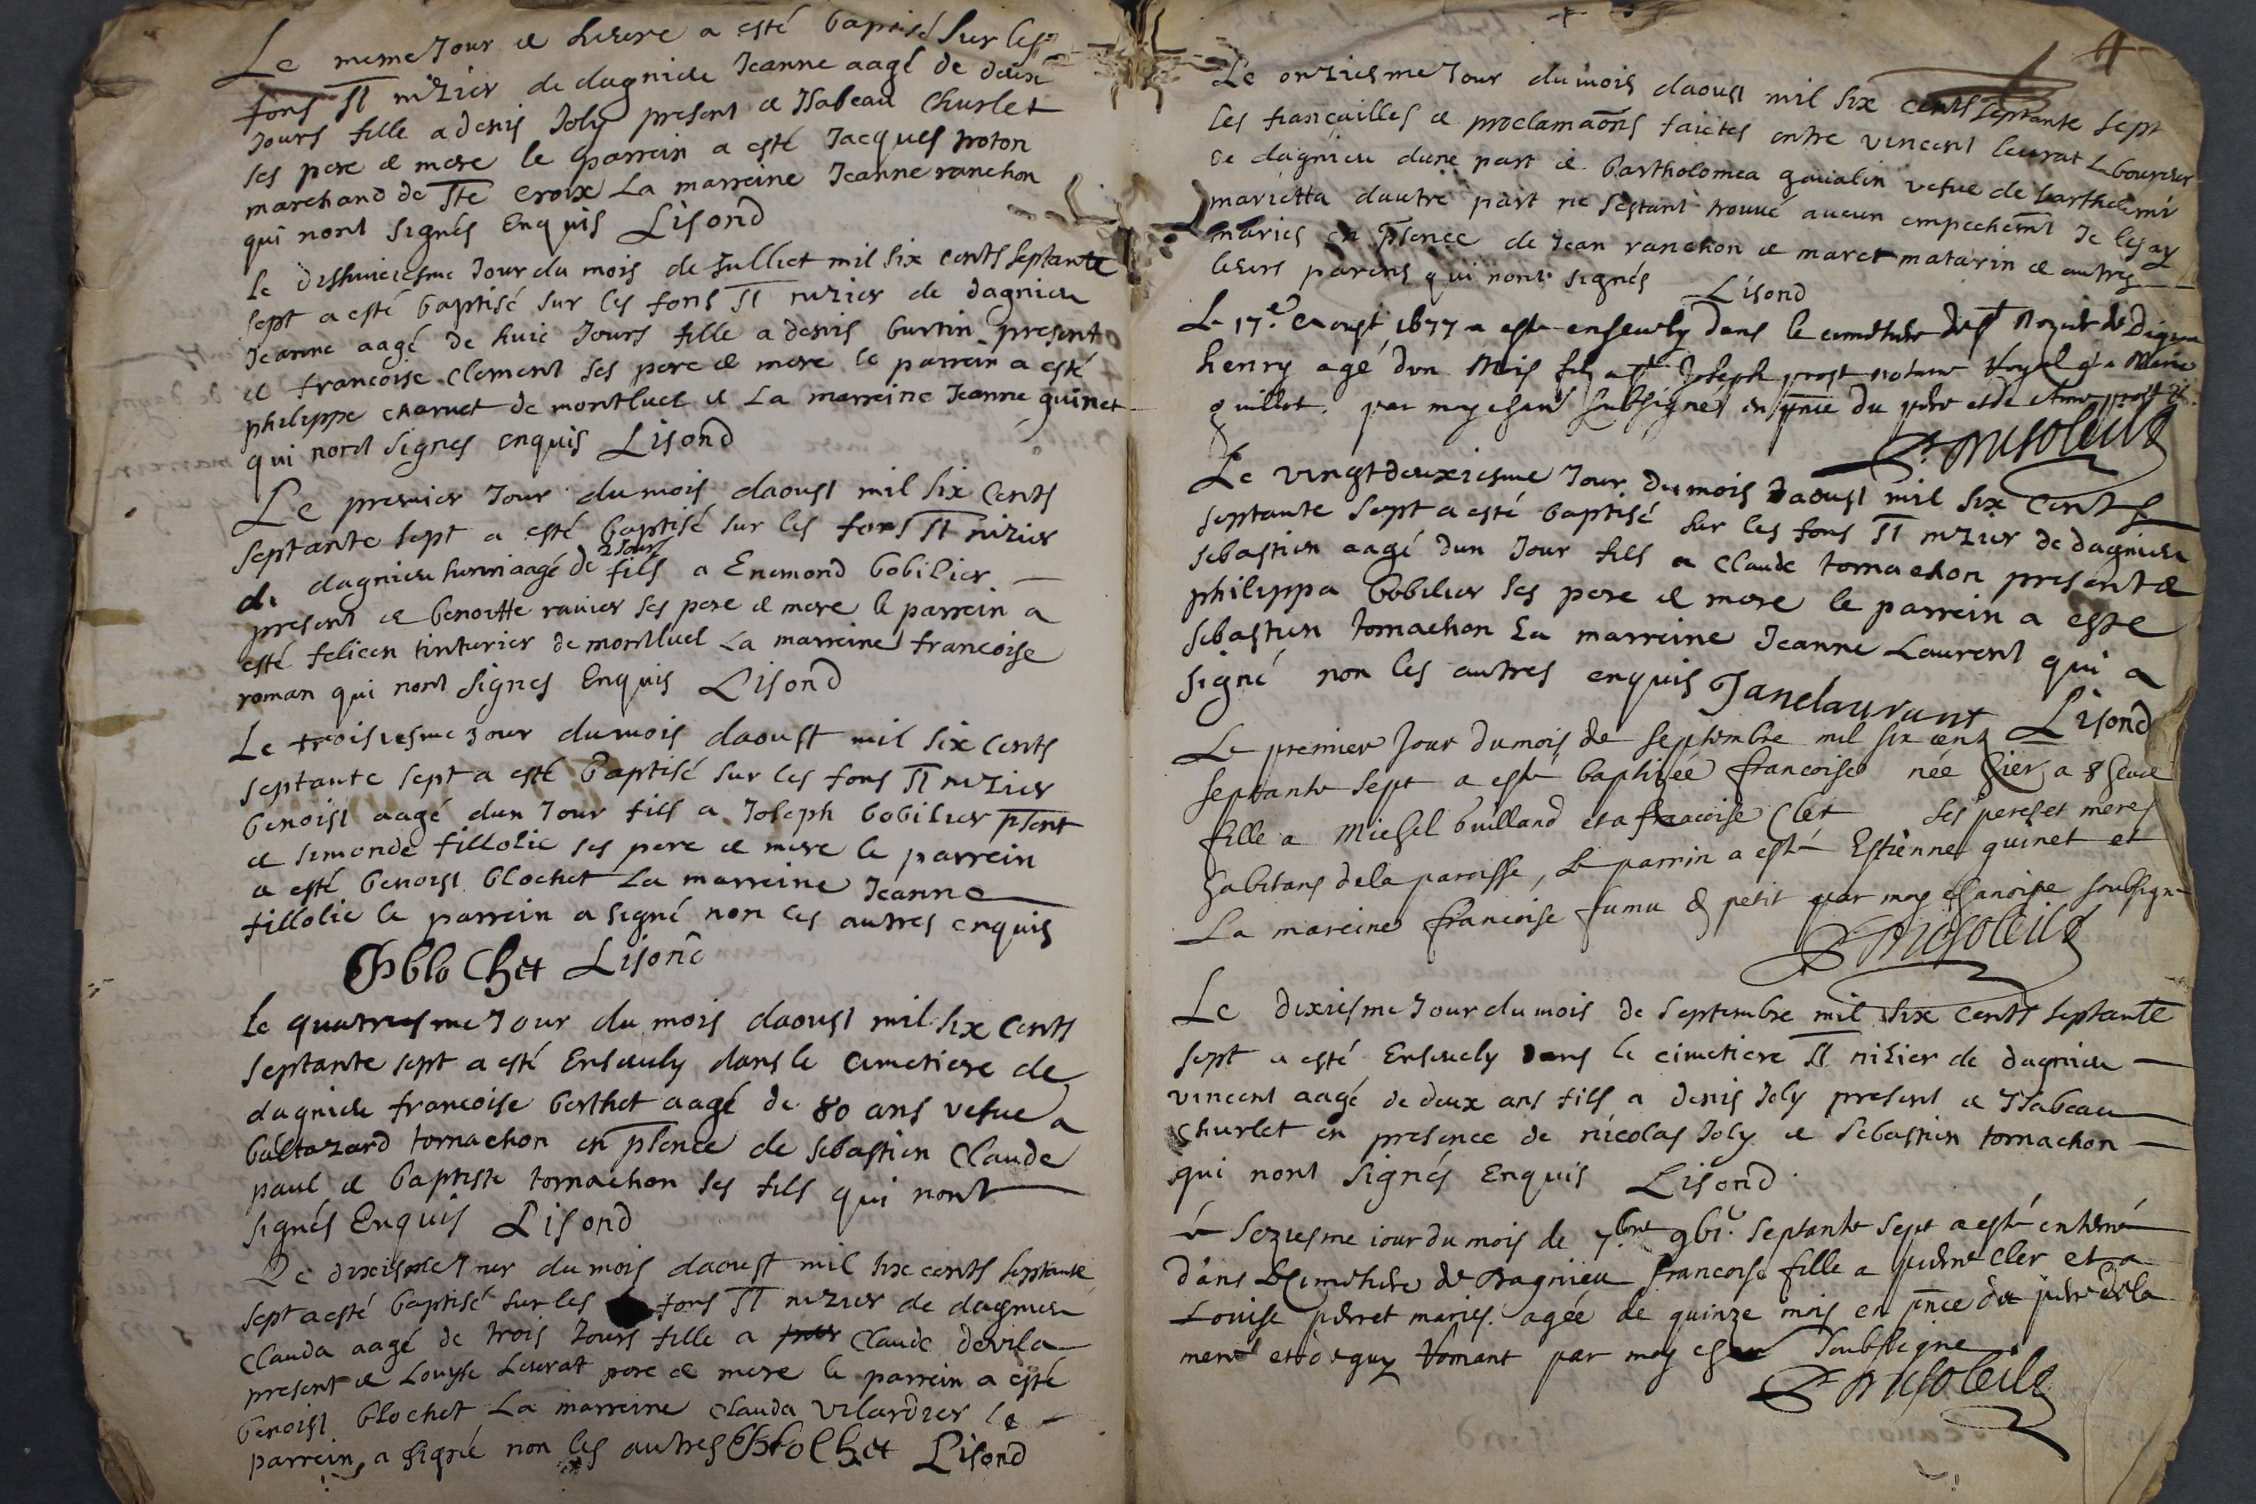 Le meme Jour et heure a esté baptisé sur les
fons St nizier de dagnieu Jeanne aagé de deux
Jours fille a denis Joly present et Isabeau Churlet
ses pere et mere le parrein a esté Jacques
marchand de Ste Croix La marreine Jeanne ranchon
qui nont signés Enquis Lisond
le dixhuictiesme Jour du mois de Julliet mil six cents septante
sept a esté baptisé sur les fons St nizier de dagnieu
Jeanne aagé de huit Jours fille a denis burtin present
et francoise Clement ses pere et mere le parrein a esté
philippe charvet de montluel et La marreine Jeanne guinet
qui nont signes enquis Lisond
Le premier Jour du mois daoust mil six Cents
septante sept a esté baptisé sur les fons St nizier
2 Jours
de dagnieu henri aagé de fils a Enemond bobilier
present et benoitte ravier ses pere et mere le parrein a
esté felicen tinturier de montluel La marreine francoise
roman qui nont signes Enquis Lisond
Le troisiesme Jour du mois daoust mil six Cents
septante sept a esté baptisé sur les fons St nizier
benoist aagé dun Jour fils a Joseph bobilier pnt
et simonde fillolie ses pere et mere le parrein
a esté benoist blochet La marreine Jeanne
fillolie le parrein a signé non les autres enquis
Bblochet Lisond
Le quatriesme Jour du mois daoust mil six Cents
septante sept a esté Ensevely dans le cimetiere de
dagnieu francoise berthet aagé de 80 ans vefve a
baltazard tornachon en pnce de sebastien Claude
paul et baptiste tornachon ses fils qui nont
signés Enquis Lisond
Le dixiesme Jour du mois daoust mil six cents septante
sept a esté baptisé sur les fons St nizier de dagnieu
Clauda aagé de trois Jours fille a Claude devila
present et Louyse Leurat pere et mere le parrein a esté
benoist blochet La marreine Clauda vilardier le
parrein a signé non les autres Bblochet Lisond
4
Le onziesme Jour du mois daoust mil six cents septante sept
les fiançailles et proclamaons faictes entre vincent leurat Laboureur
de dagnieu dune part et bartholomea gavalin vefve de barthelemi
marietta dautre part ne sestant trouvé aucun empechemt Je les ay
mariés en pnce de Jean ranchon et maret matarin et autres
leurs parens qui nont signés Lisond
Le 17e Aoust 1677 a esté ensevely dans le cimetiere de St Nizier de Dagnieu
henry agé dun Mois fils a Joseph prost notaire Royal et a Marie
guillot. par moy soubsigné en pnce du pere et de
Le vingtdeuxiesme Jour du mois daoust mil six Cents
septante sept a esté baptisé sur les fons St nizier de dagnieu
sebastien aagé dun Jour fils a Claude tornachon present et
philippa bobilier ses pere et mere le parrein a esté
sebastien tornachon La marreine Jeanne Laurent qui a
signé non les autres enquis Janelaurant Lisond
Le premier Jour du mois de septembre mil six cent
septante sept a esté baptisée francoise née hier a 8 heure
fille a Michel buillard et a francoise Clet ses peres et meres
habitans de la paroisse, Le parrin a esté Estienne quinet et
La mareine francoise par moy chanoine soubsigne
Le dixiesme Jour du mois de septembre mil six cents septante
sept a esté Ensevely dans le cimetiere St nizier de dagnieu
vincent aagé de deux ans fils a denis Joly present et Isabeau
Churlet en presence de nicolas Joly et sebastien tornachon
qui nont signés Enquis Lisond
Le seziesme iour du mois de 7bre septante sept a esté enterré
dans Le cimetiere de Dagnieu francoise fille a pierre Cler et a
Louise perret mariés. agée de quinze mois en pnce du pere de la
mere et de guy par moy soubsigne